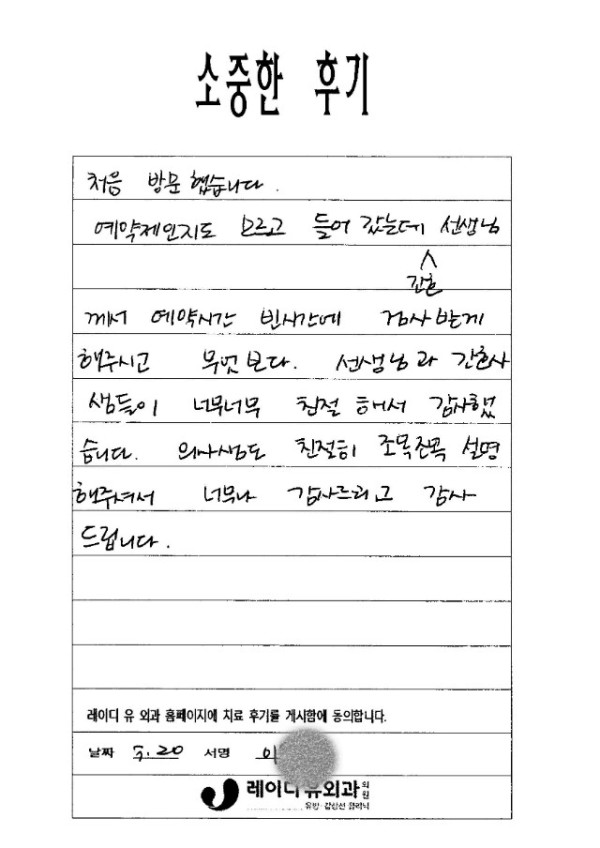 소중한 후기
처음 방문 했습니다.
예약제인지도 모르고 들어 갔는데 선생님
간호
께서 예약시간 빈시간에 검사 받게
해주시고 무엇 보다. 선생님과 간호사
샘들이 너무너무 친절 해서 감사했
습니다. 의사샘도 친절히 조목조목 설명
해주셔서 너무나 감사드리고 감사
드립니다.
레이디 유 외과 홈페이지에 치료 후기를 게시함에 동의합니다.
날짜 5.20 서명 이
레이디유외과의원
유방·갑상선 클리닉